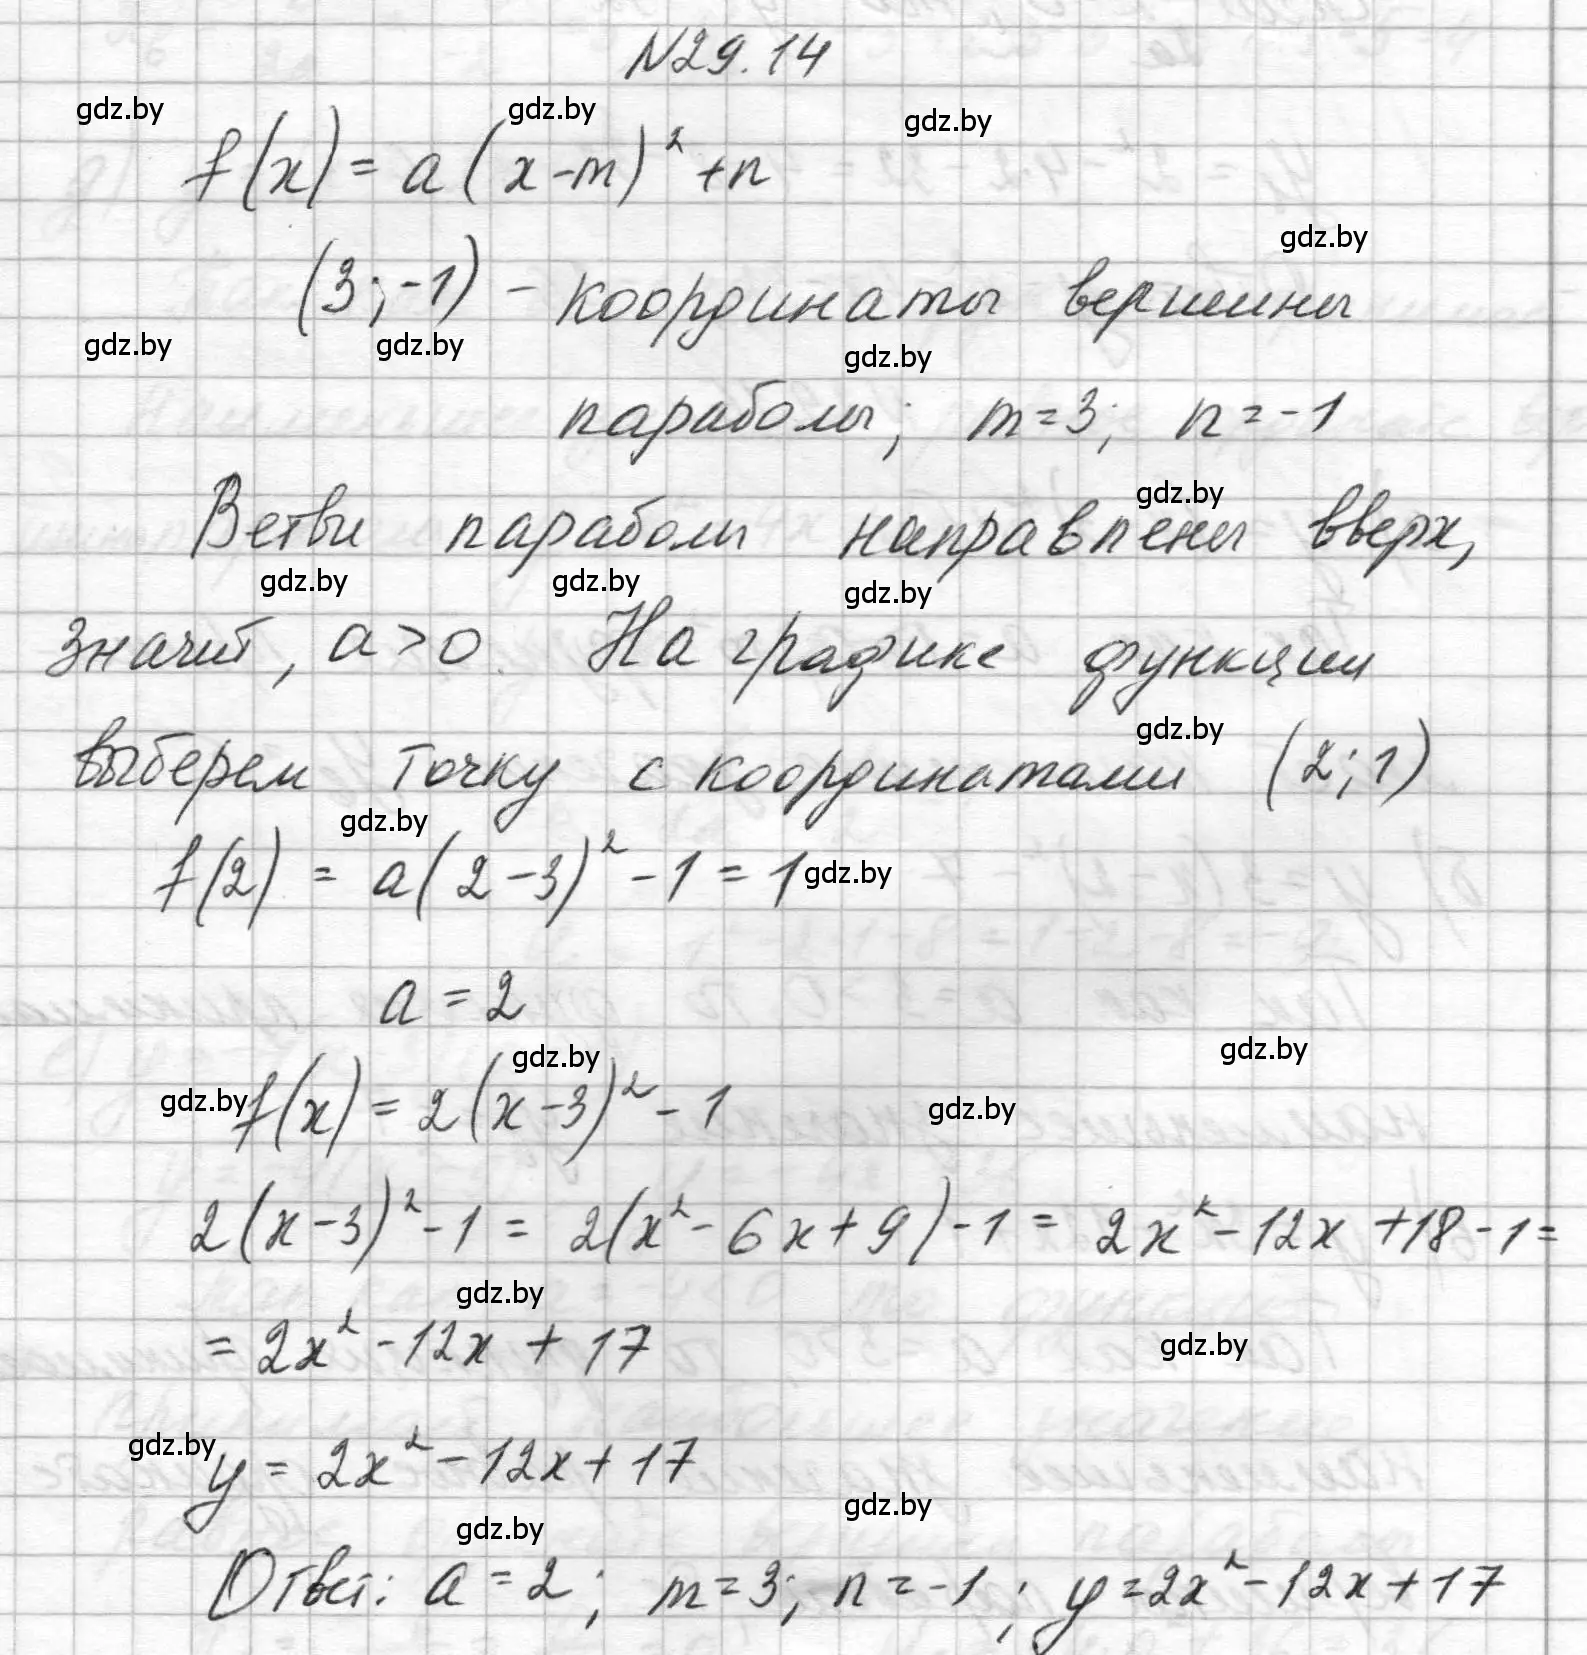 N29.14
gdz.by gdz.by gdz.by
f(x) = a(x-m)² + n
gdz.by
(3; -1) - координаты вершины
gdz.by gdz.by gdz.by
параболы; m=3; n=-1
gdz.by
Ветви параболы направлены вверх,
gdz.by gdz.by gdz.by
значит, a>0. На графике функции
gdz.by
выберем точку с координатами (2; 1)
gdz.by
f(2) = a(2-3)² - 1 = 1 gdz.by
a = 2
gdz.by gdz.by
gdz.by f(x) = 2(x-3)² - 1 gdz.by
2(x-3)² - 1 = 2(x² - 6x + 9) - 1 = 2x² - 12x + 18 - 1 =
gdz.by
= 2x² - 12x + 17 gdz.by
gdz.by y = 2x² - 12x + 17
gdz.by gdz.by
Ответ: a = 2; m = 3; n = -1; y = 2x² - 12x + 17